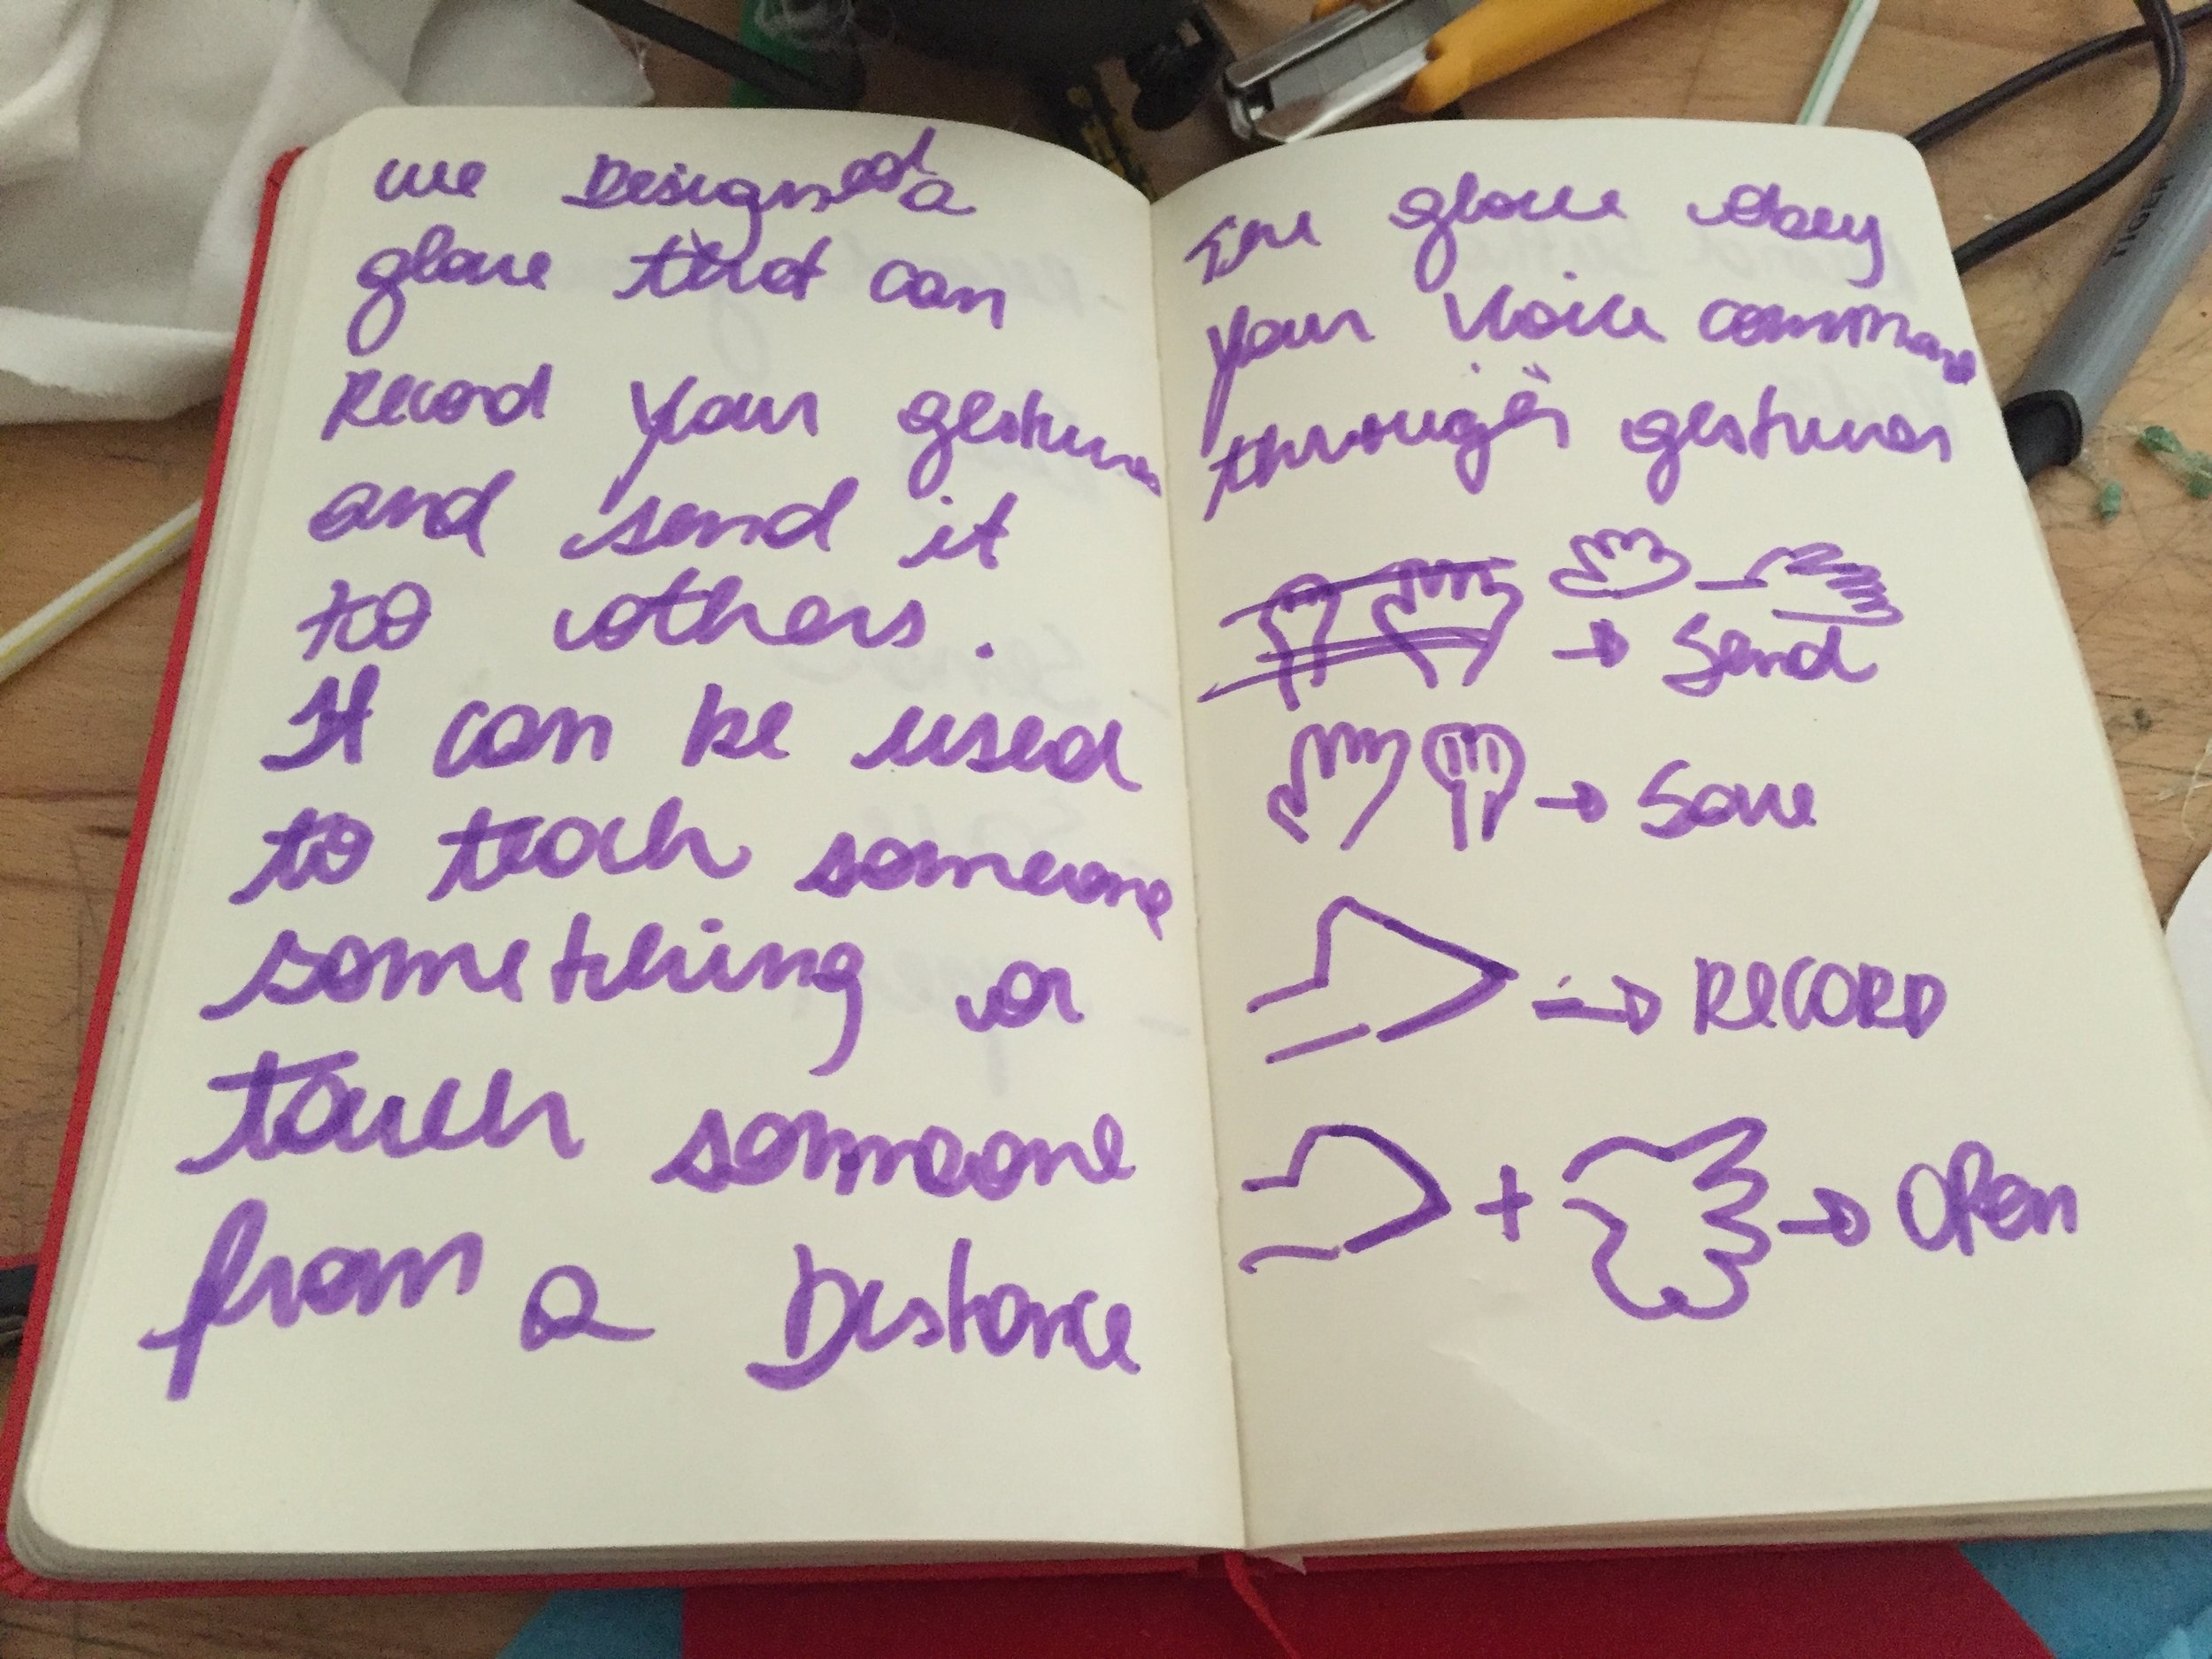 we Designed a
glove that can
Record your gestures
and send it
to others.
It can be used
to teach someone
something or
touch someone
from a Distance
The glove obey
your voice command
through gestures
→ Send
→ Save
→ RECORD
+ → Open
TIGER